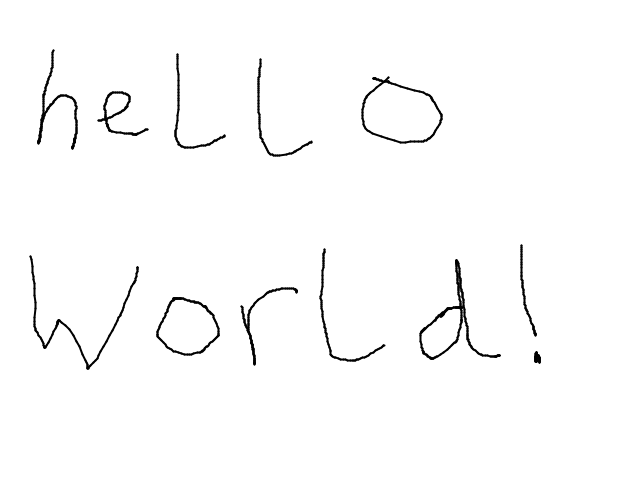 hello
World!